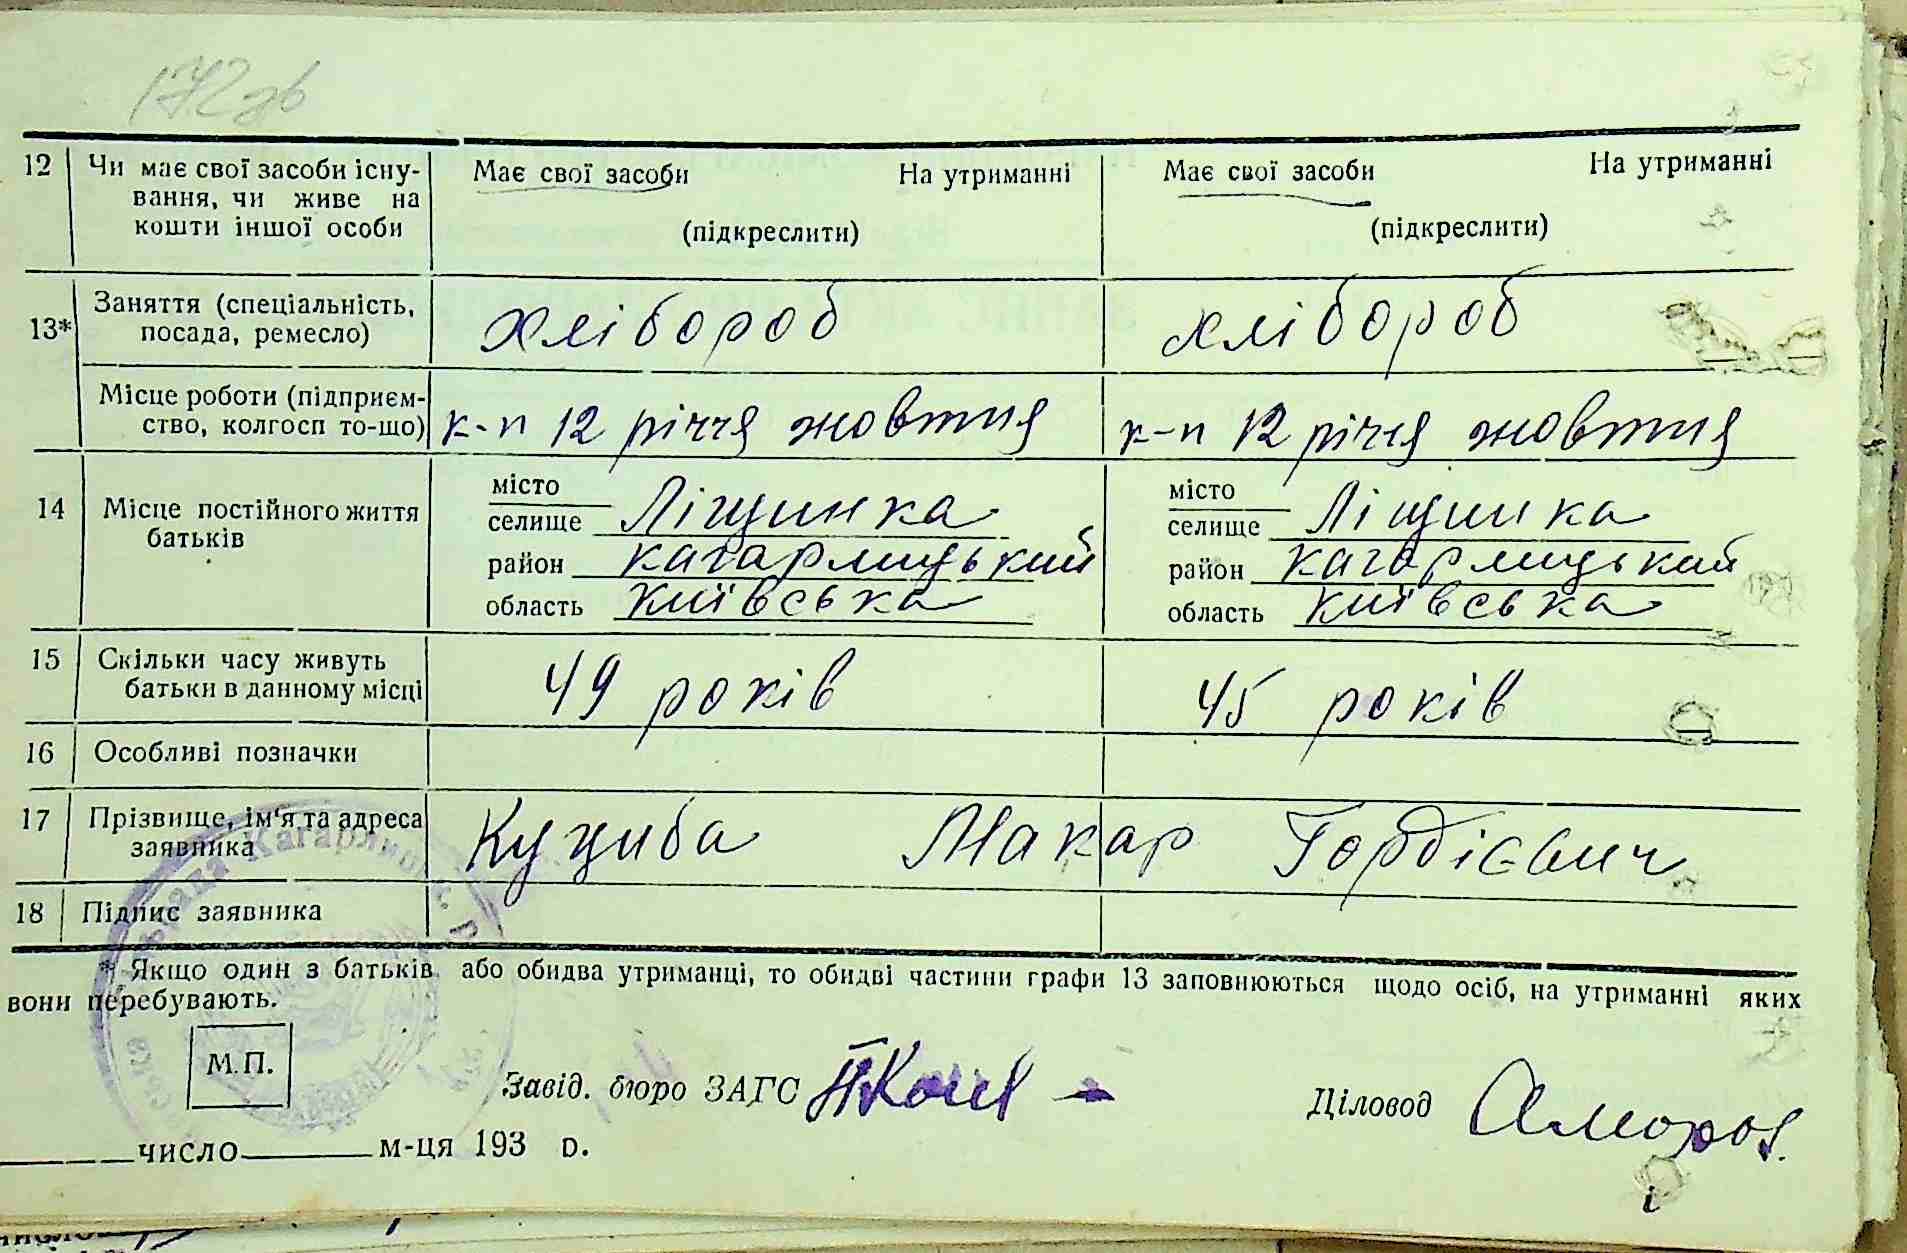 172зв
12 Чи має свої засоби існу- Має свої засоби На утриманні Має свої засоби На утриманні
вання, чи живе на
кошти іншої особи (підкреслити) (підкреслити)
13* Заняття (спеціальність, хлібороб хлібороб
посада, ремесло)
Місце роботи (підприєм- к-п 12 річчя жовтня к-п 12 річчя жовтня
ство, колгосп то-що)
14 Місце постійного життя місто місто
батьків селище Ліщинка селище Ліщинка
район Кагарлицький район Кагарлицький
область Київська область Київська
15 Скільки часу живуть 49 років 45 років
батьки в данному місці
16 Особливі позначки
17 Прізвище, ім'я та адреса Куциба Макар Гордієвич
заявника
18 Підпис заявника
* Якщо один з батьків або обидва утриманці, то обидві частини графи 13 заповнюються щодо осіб, на утриманні яких
вони перебувають.
М.П.
Завід. бюро ЗАГС Діловод
число м-ця 193 р.